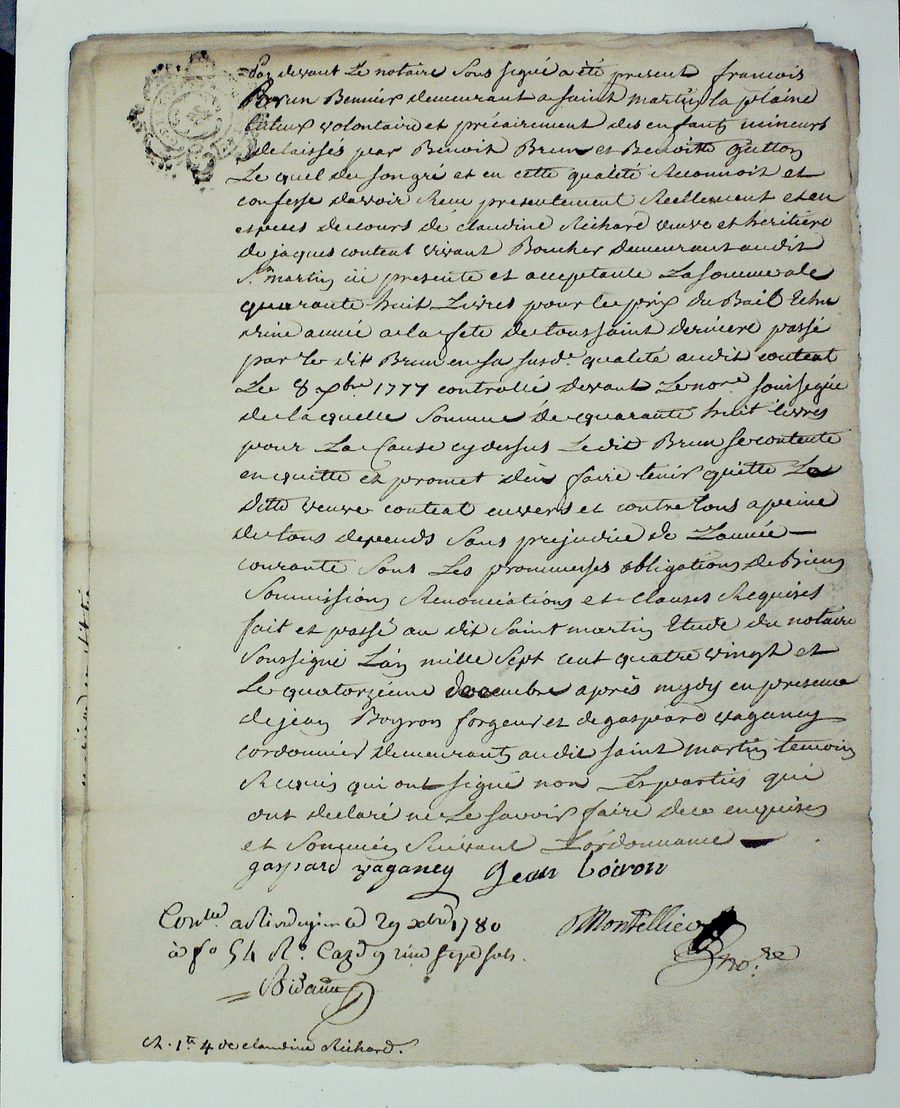 Par devant Le notaire Sous signé a été present francois
Brun Bennier demeurant a saint martin la plaine
tuteur volontaire et précairement des enfants mineurs
delaissés par Benoit Brun et Benoitte guitton
Le quel de son gre et en cette qualité Reconnoit et
confesse davoir Receu presentement Reellement et en
especes de cours de claudine Richard veuve et heritiere
de jaques content vivant Boucher demeurant audit
St martin ici presente et acceptante La somme de
quarante huit Livres pour le prix du Bail Echu
dune année a la fete de toussaint derniere passé
par le dit Brun en sa susde qualité audit content
Le 8 xbre 1777 controllé devant Le nore soussigné
de laquelle Somme de quarante huit Livres
pour La Cause cy dessus Ledit Brun se contente
en quitte et promet den faire tenir quitte La
ditte veuve content envers et contre tous a peine
de tous depends Sans prejudice de Lannée
courante Sous Les prommesses obligations de Biens
Soumissions Renonciations et clauses Requises
fait et passé au dit Saint martin Etude du notaire
Soussigné Lan mille Sept cent quatre vingt et
Le quatorzieme decembre après mydy en presence
de jean Boyron forgeur et de gaspard vaganey
cordonnier demeurants audit saint martin temoins
Requis qui ont signé non Les parties qui
ont declaré ne Le savoir faire de ce enquises
et Sommées Suivant Lordonnance
gaspard vaganey Jean boiron
Conllé a Rivedegier le 29 xbre 1780
à fo 54 Ro. Caze 9 sept sols.
Montellier
no:re
R. 1th 4 de claudine Richard.